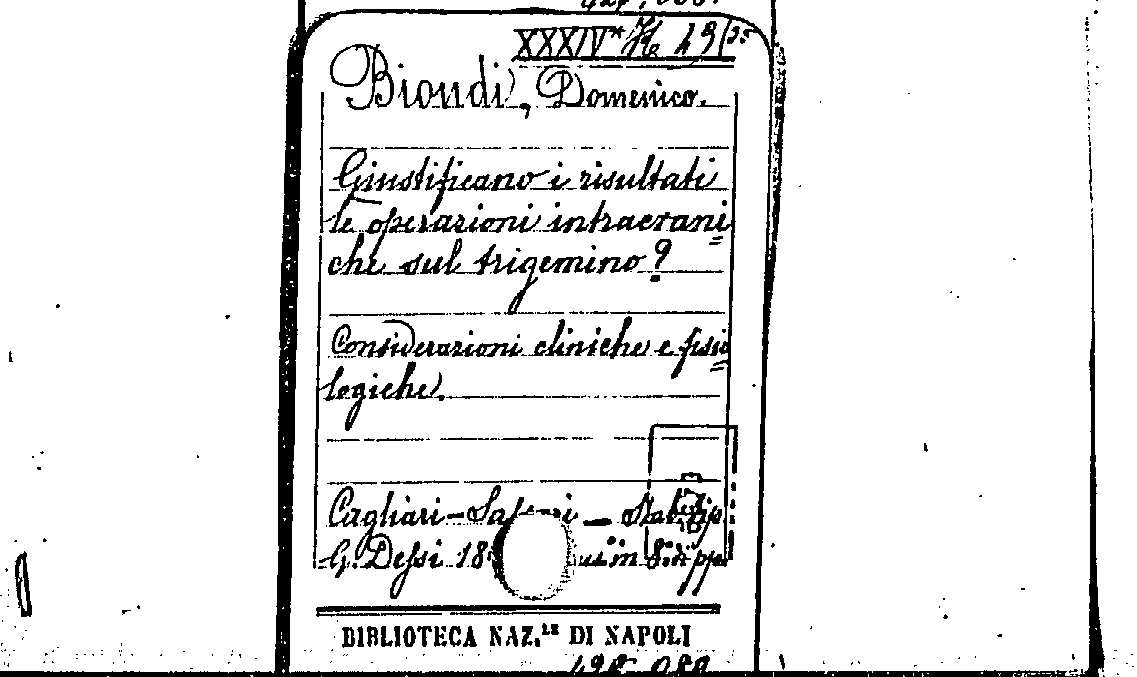 XXXIV*
Biondi, Domenico.
Giustificano i risultati
le operazioni intracrani=
che sul trigemino?
Considerazioni cliniche e fisio=
logiche.
Cagliari - — Stab. tip.
G. Dessi 18 in 8.° di pp.
BIBLIOTECA NAZ.LE DI NAPOLI